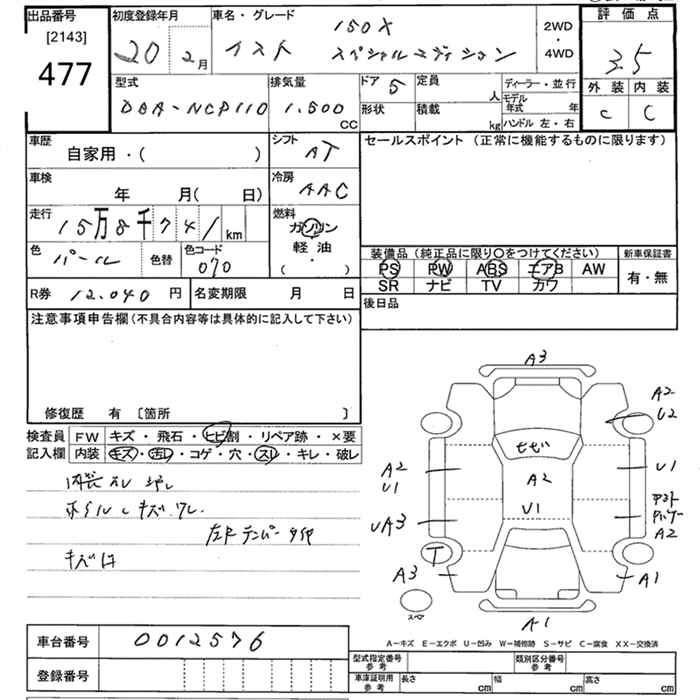 出品番号 初度登録年月 車名・グレード 150X 2WD 評価点
[2143] 20 2月 イスト スペシャルエディション ・ 3.5
477 4WD 外装 内装
型式 排気量 ドア 5 定員 人 ディーラー・並行 C C
DBA-NCP110 1,500 CC 形状 積載 kg モデル年式 年
ハンドル 左・右
車歴 シフト AT セールスポイント (正常に機能するものに限ります)
自家用・( )
車検 冷房 AAC
年 月( 日)
走行 燃料
15万8千741km ガソリン
色 パール 色替 色コード 070 軽油 装備品 (純正品に限り〇をつけてください) 新車保証書
(・) PS PW ABS エアB AW 有・無
R券 12,040 円 名変期限 月 日 SR ナビ TV カワ
注意事項申告欄 (不具合内容等は具体的に記入して下さい) 後日品
修復歴 有 〔箇所 〕
検査員 FW キズ・飛石・ヒビ割・リペア跡・×要
記入欄 内装 キズ・汚レ・コゲ・穴・スレ・キレ・破レ
内装スレ
ホイルキズ
左F テンパータイヤ
A3
A2
U2
ヒビ
A2 U1
U1 A2
U1
UA3 A2
T
A3 A1
スペア A1
A-キズ E-エクボ U-凹み W-補修跡 S-サビ C-腐食 XX-交換済
車台番号 0012576
登録番号
型式指定番号 参考 類別区分番号 参考
車庫証明用 参考 長さ cm 幅 cm 高さ cm